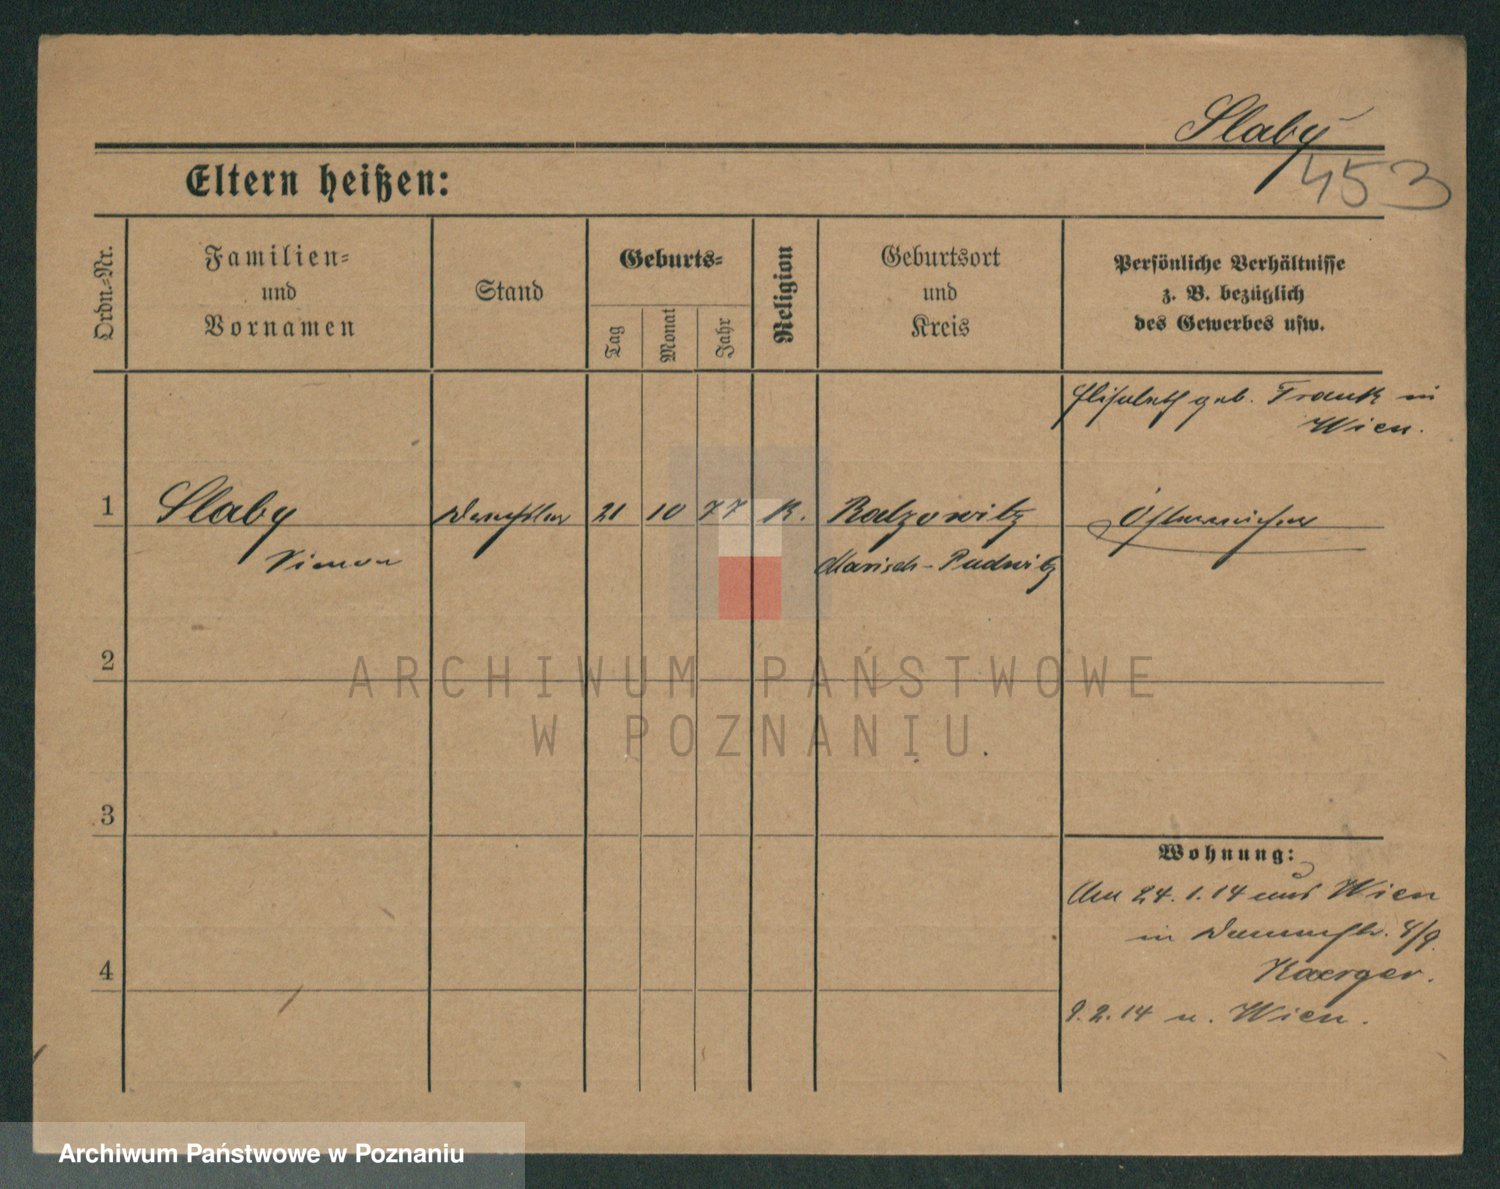 Slaby
453
Eltern heißen:
Ordn.-Nr.
Familien-
und
Vornamen
Stand
Geburts-
Tag
Monat
Jahr
Religion
Geburtsort
und
Kreis
Persönliche Verhältnisse
z. B. bezüglich
des Gewerbes usw.
Elisabeth geb. Frank in
Wien.
1
Slaby
Simon
21
10
77
K.
Ratzowitz
Marisch-Budwitz
Österreicher
2
ARCHIWUM PAŃSTWOWE
W POZNANIU
3
4
Wohnung:
Am 24.1.14 aus Wien
in 4/9.
Kaerger.
9.2.14 n. Wien.
Archiwum Państwowe w Poznaniu